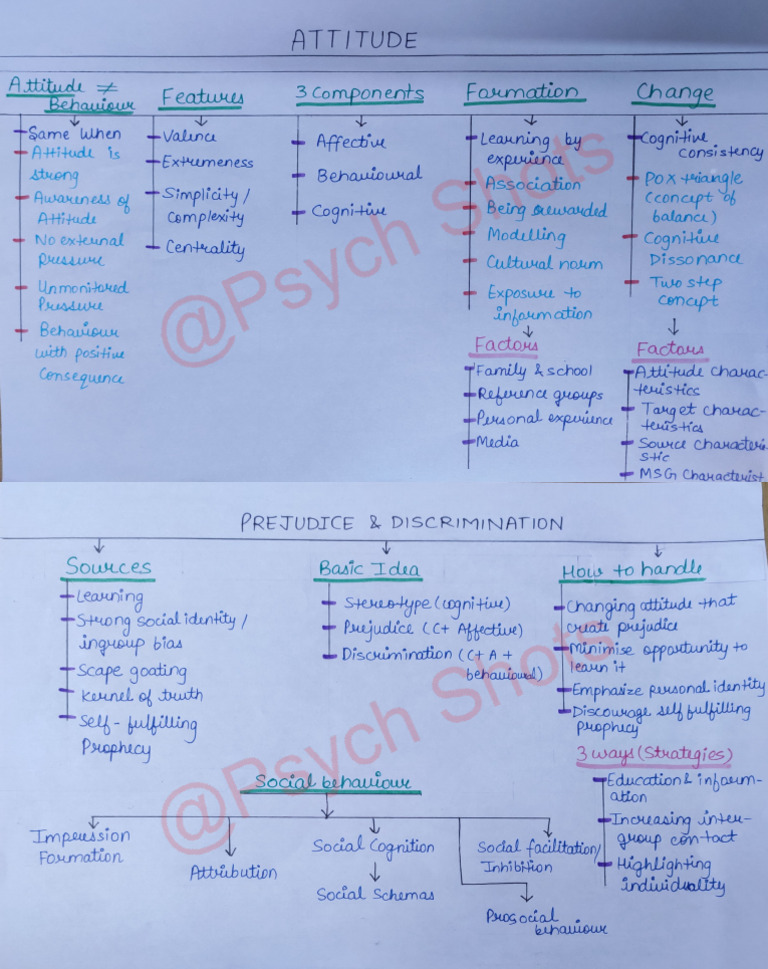 ATTITUDE
Attitude ≠
Behaviour
Same when
Attitude is
strong
Awareness of
Attitude
No external
Pressure
Unmonitored
Pressure
Behaviour
with positive
Consequence
Features
Valence
Extremeness
Simplicity /
complexity
Centrality
3 Components
Affective
Behavioural
Cognitive
Formation
Learning by
experience
Association
Being rewarded
Modelling
Cultural norm
Exposure to
information
Factors
Family & school
Reference groups
Personal experience
Media
Change
Cognitive
consistency
POX triangle
(concept of
balance)
Cognitive
Dissonance
Two step
concept
Factors
Attitude charac-
teristics
Target charac-
teristics
Source characteri
stic
MSG Characterist
@Psych Shots
PREJUDICE & DISCRIMINATION
Sources
Learning
Strong social identity /
ingroup bias
Scape goating
Kernel of truth
Self-fulfilling
Prophecy
Basic Idea
Stereotype (cognitive)
Prejudice (C+ Affective)
Discrimination (C+ A +
behavioural)
How to handle
Changing attitude that
create prejudice
Minimise opportunity to
learn it
Emphasize personal identity
Discourage self fulfilling
prophecy
3 ways (Strategies)
Education & inform-
ation
Increasing inter-
group contact
Highlighting
individuality
Social behaviour
Impression
Formation
Attribution
Social Cognition
Social Schemas
Social facilitation/
Inhibition
Prosocial
behaviour
@Psych Shots